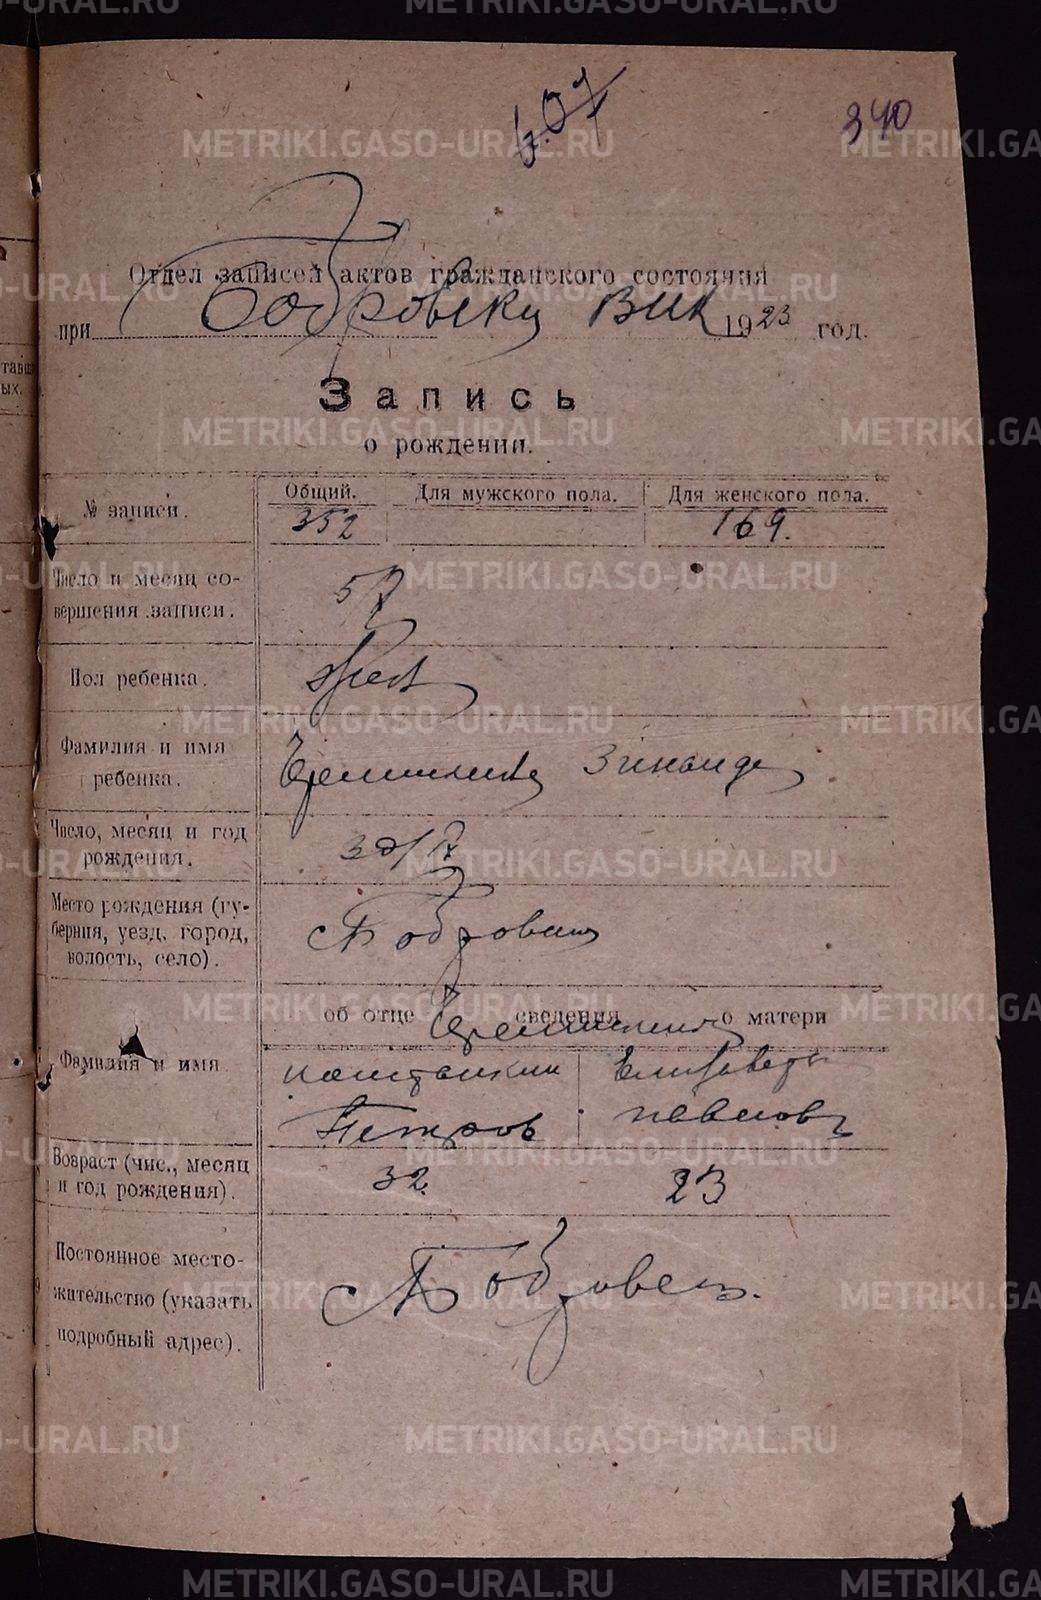 METRIKI.GASO-URAL.RU
407
340
Отдел записей актов гражданского состояния
при Бобровску Вик 1923 год.
Запись
о рождении.
№ записи. Общий. Для мужского пола. Для женского пола.
352 169.
Число и месяц со-
вершения записи.
5/X
Пол ребенка. Жен
Фамилия и имя
ребенка.
Зинаида
Число, месяц и год
рождения.
30/IX
Место рождения (гу-
берния, уезд, город,
волость, село).
об отце сведения о матери
Фамилия и имя
Константин Елизавета
Петров Павлов
Возраст (чис., месяц
и год рождения).
32. 23
Постоянное место-
жительство (указать
подробный адрес).